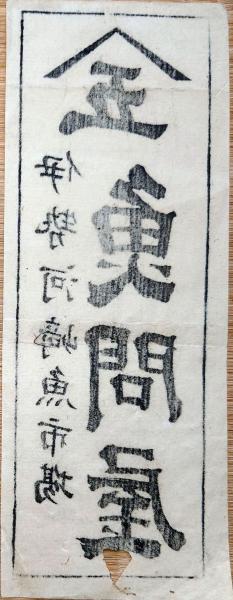 伊勢河崎魚市場
五魚問屋